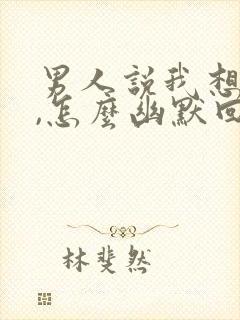 男人說我想
,怎麼幽默回
林斐然